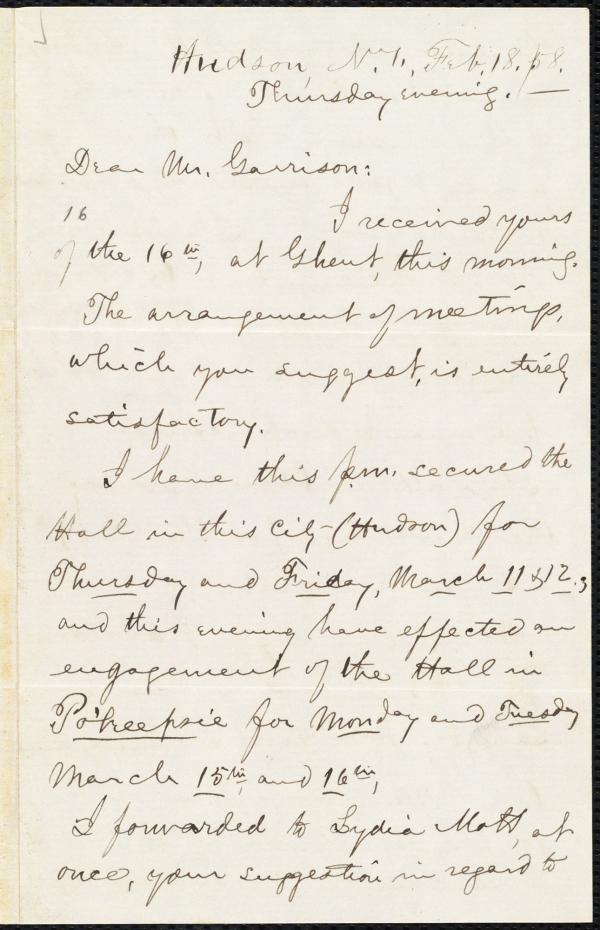 Hudson, N.Y., Feb. 18. /58.
Thursday evening. —
Dear Mr. Garrison:
16
I received yours
of the 16th, at Ghent, this morning.
The arrangement of meetings,
which you suggest, is entirely
satisfactory.
I have this p.m. secured the
Hall in this city - (Hudson) for
Thursday and Friday, March 11 & 12.,
and this evening have effected an
engagement of the Hall in
Po'keepsie for Monday and Tuesday
March 15th, and 16th,
I forwarded to Lydia Mott, at
once, your suggestion in regard to